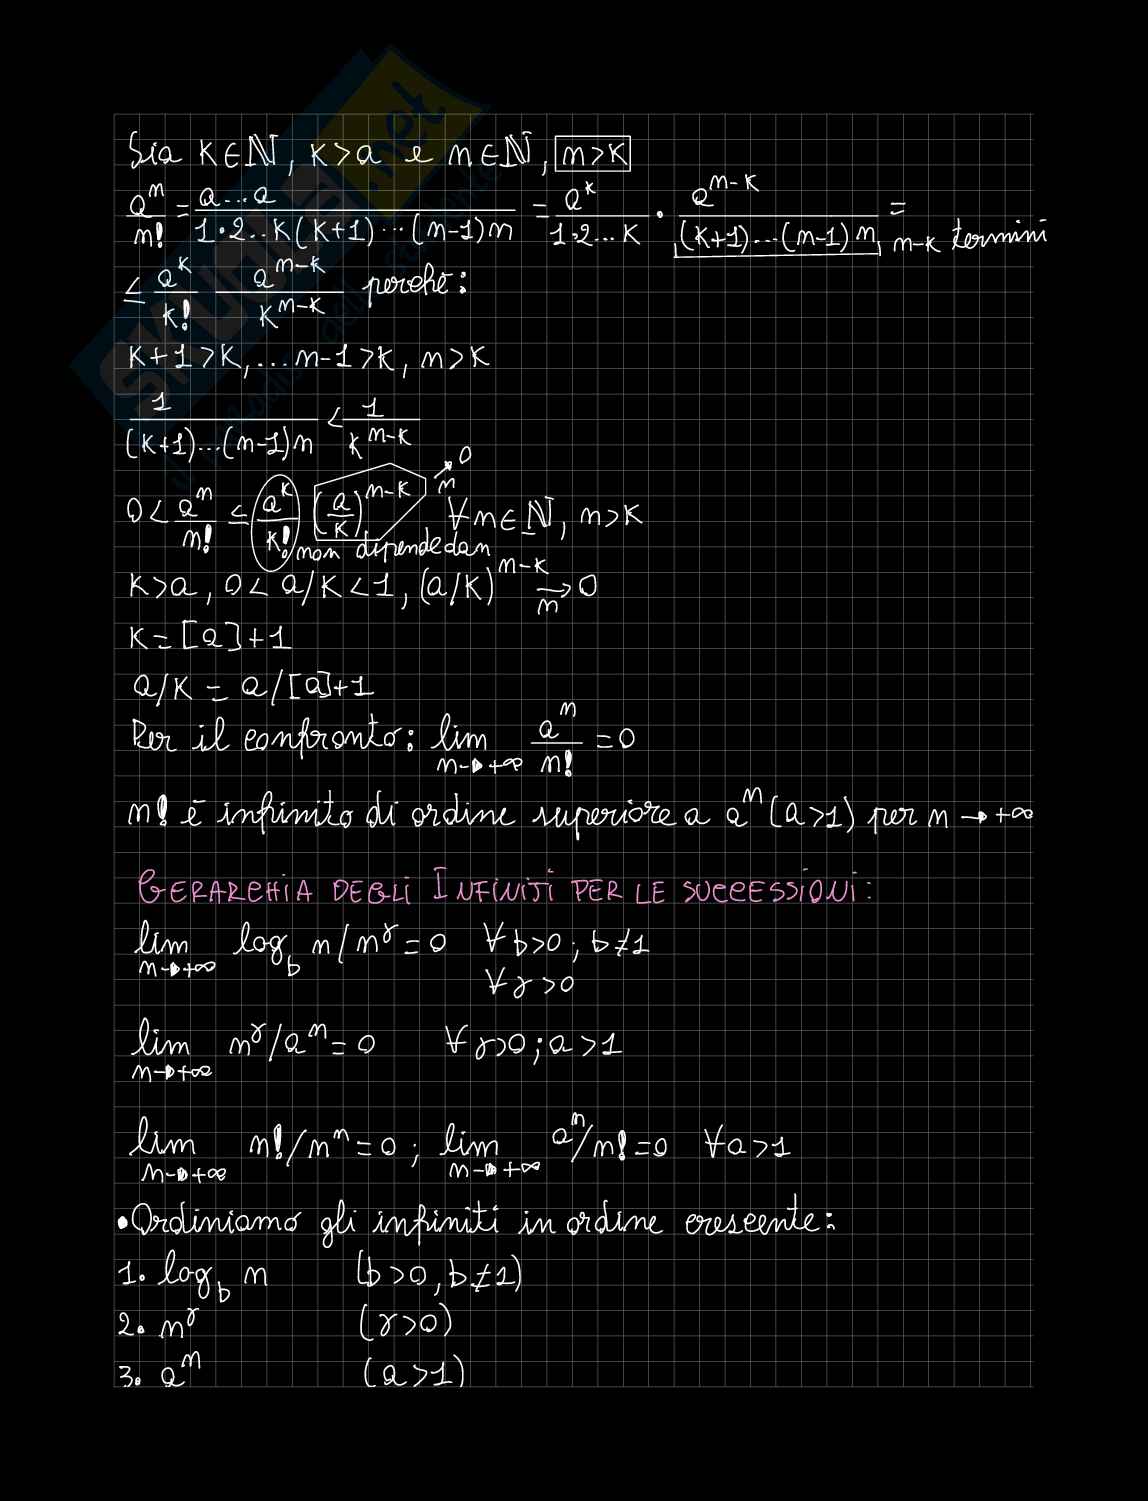 Sia K∈ℕ, K>a e n∈ℕ, n>K
aⁿ/n! = a...a / 1·2..K(K+1)...(n-1)n = aᴷ / 1·2...K · aⁿ⁻ᴷ / (K+1)...(n-1)n = n-K termini
≤ aᴷ/K! aⁿ⁻ᴷ/Kⁿ⁻ᴷ perché:
K+1>K,...n-1>K, n>K
1/(K+1)...(n-1)n < 1/Kⁿ⁻ᴷ
0< aⁿ/n! ≤ aᴷ/K! (a/K)ⁿ⁻ᴷ →n 0 ∀n∈ℕ, n>K
non dipende da n
K>a, 0< a/K <1, (a/K)ⁿ⁻ᴷ →n 0
K=[a]+1
a/K = a/[a]+1
Per il confronto: lim n→+∞ aⁿ/n! =0
n! è infinito di ordine superiore a aⁿ(a>1) per n→+∞
GERARCHIA DEGLI INFINITI PER LE SUCCESSIONI:
lim n→+∞ log_b n/n^γ = 0 ∀b>0; b≠1
∀γ>0
lim n→+∞ n^γ/aⁿ = 0 ∀γ>0; a>1
lim n→+∞ n!/nⁿ = 0 ; lim n→+∞ aⁿ/n! = 0 ∀a>1
•Ordiniamo gli infiniti in ordine crescente:
1. log_b n (b>0, b≠1)
2. n^γ (γ>0)
3. aⁿ (a>1)